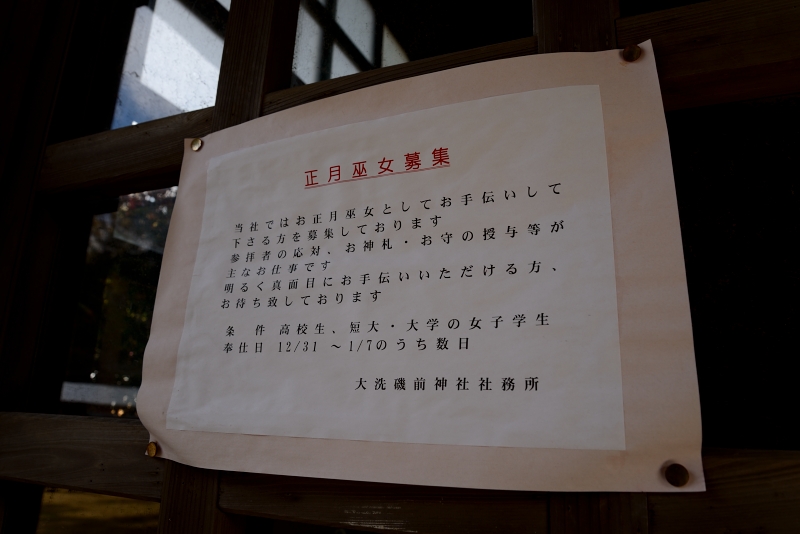 正月巫女募集
当社ではお正月巫女としてお手伝いして
下さる方を募集しております
参拝者の応対、お神札・お守の授与等が
主なお仕事です
明るく真面目にお手伝いいただける方、
お待ち致しております
条　件 高校生、短大・大学の女子学生
奉仕日 12/31 ～1/7のうち数日
大洗磯前神社社務所